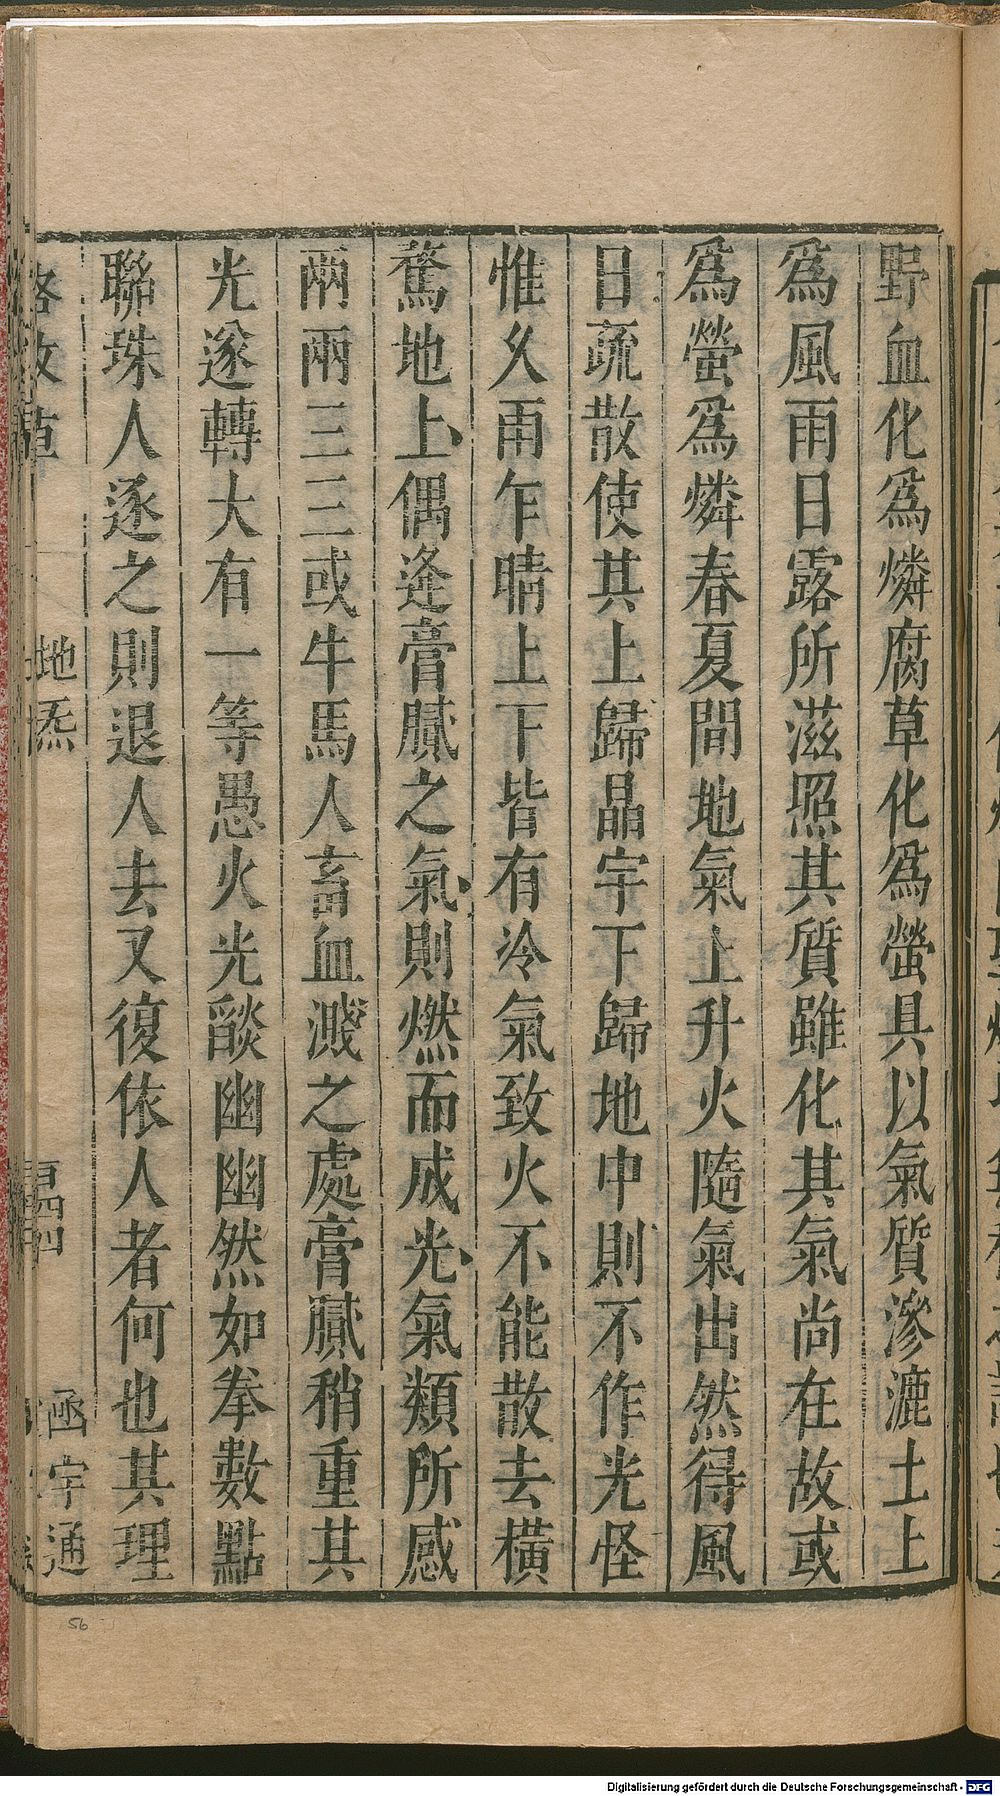 野血化爲燐腐草化爲螢具以氣質滲漉土上
爲風雨日露所滋照其質雖化其氣尚在故或
爲螢爲燐春夏間地氣上升火隨氣出然得風
日疏散使其上歸晶宇下歸地中則不作光怪
惟久雨乍晴上下皆有冷氣致火不能散去橫
騖地上偶逢膏膩之氣則燃而成光氣類所感
兩兩三三或牛馬人畜血濺之處膏膩稍重其
光遂轉大有一等愚火光燄幽幽然如拳數點
聯珠人逐之則退人去又復依人者何也其理
格致草
地炁
百四四
函宇通
56
Digitalisierung gefördert durch die Deutsche Forschungsgemeinschaft - DFG